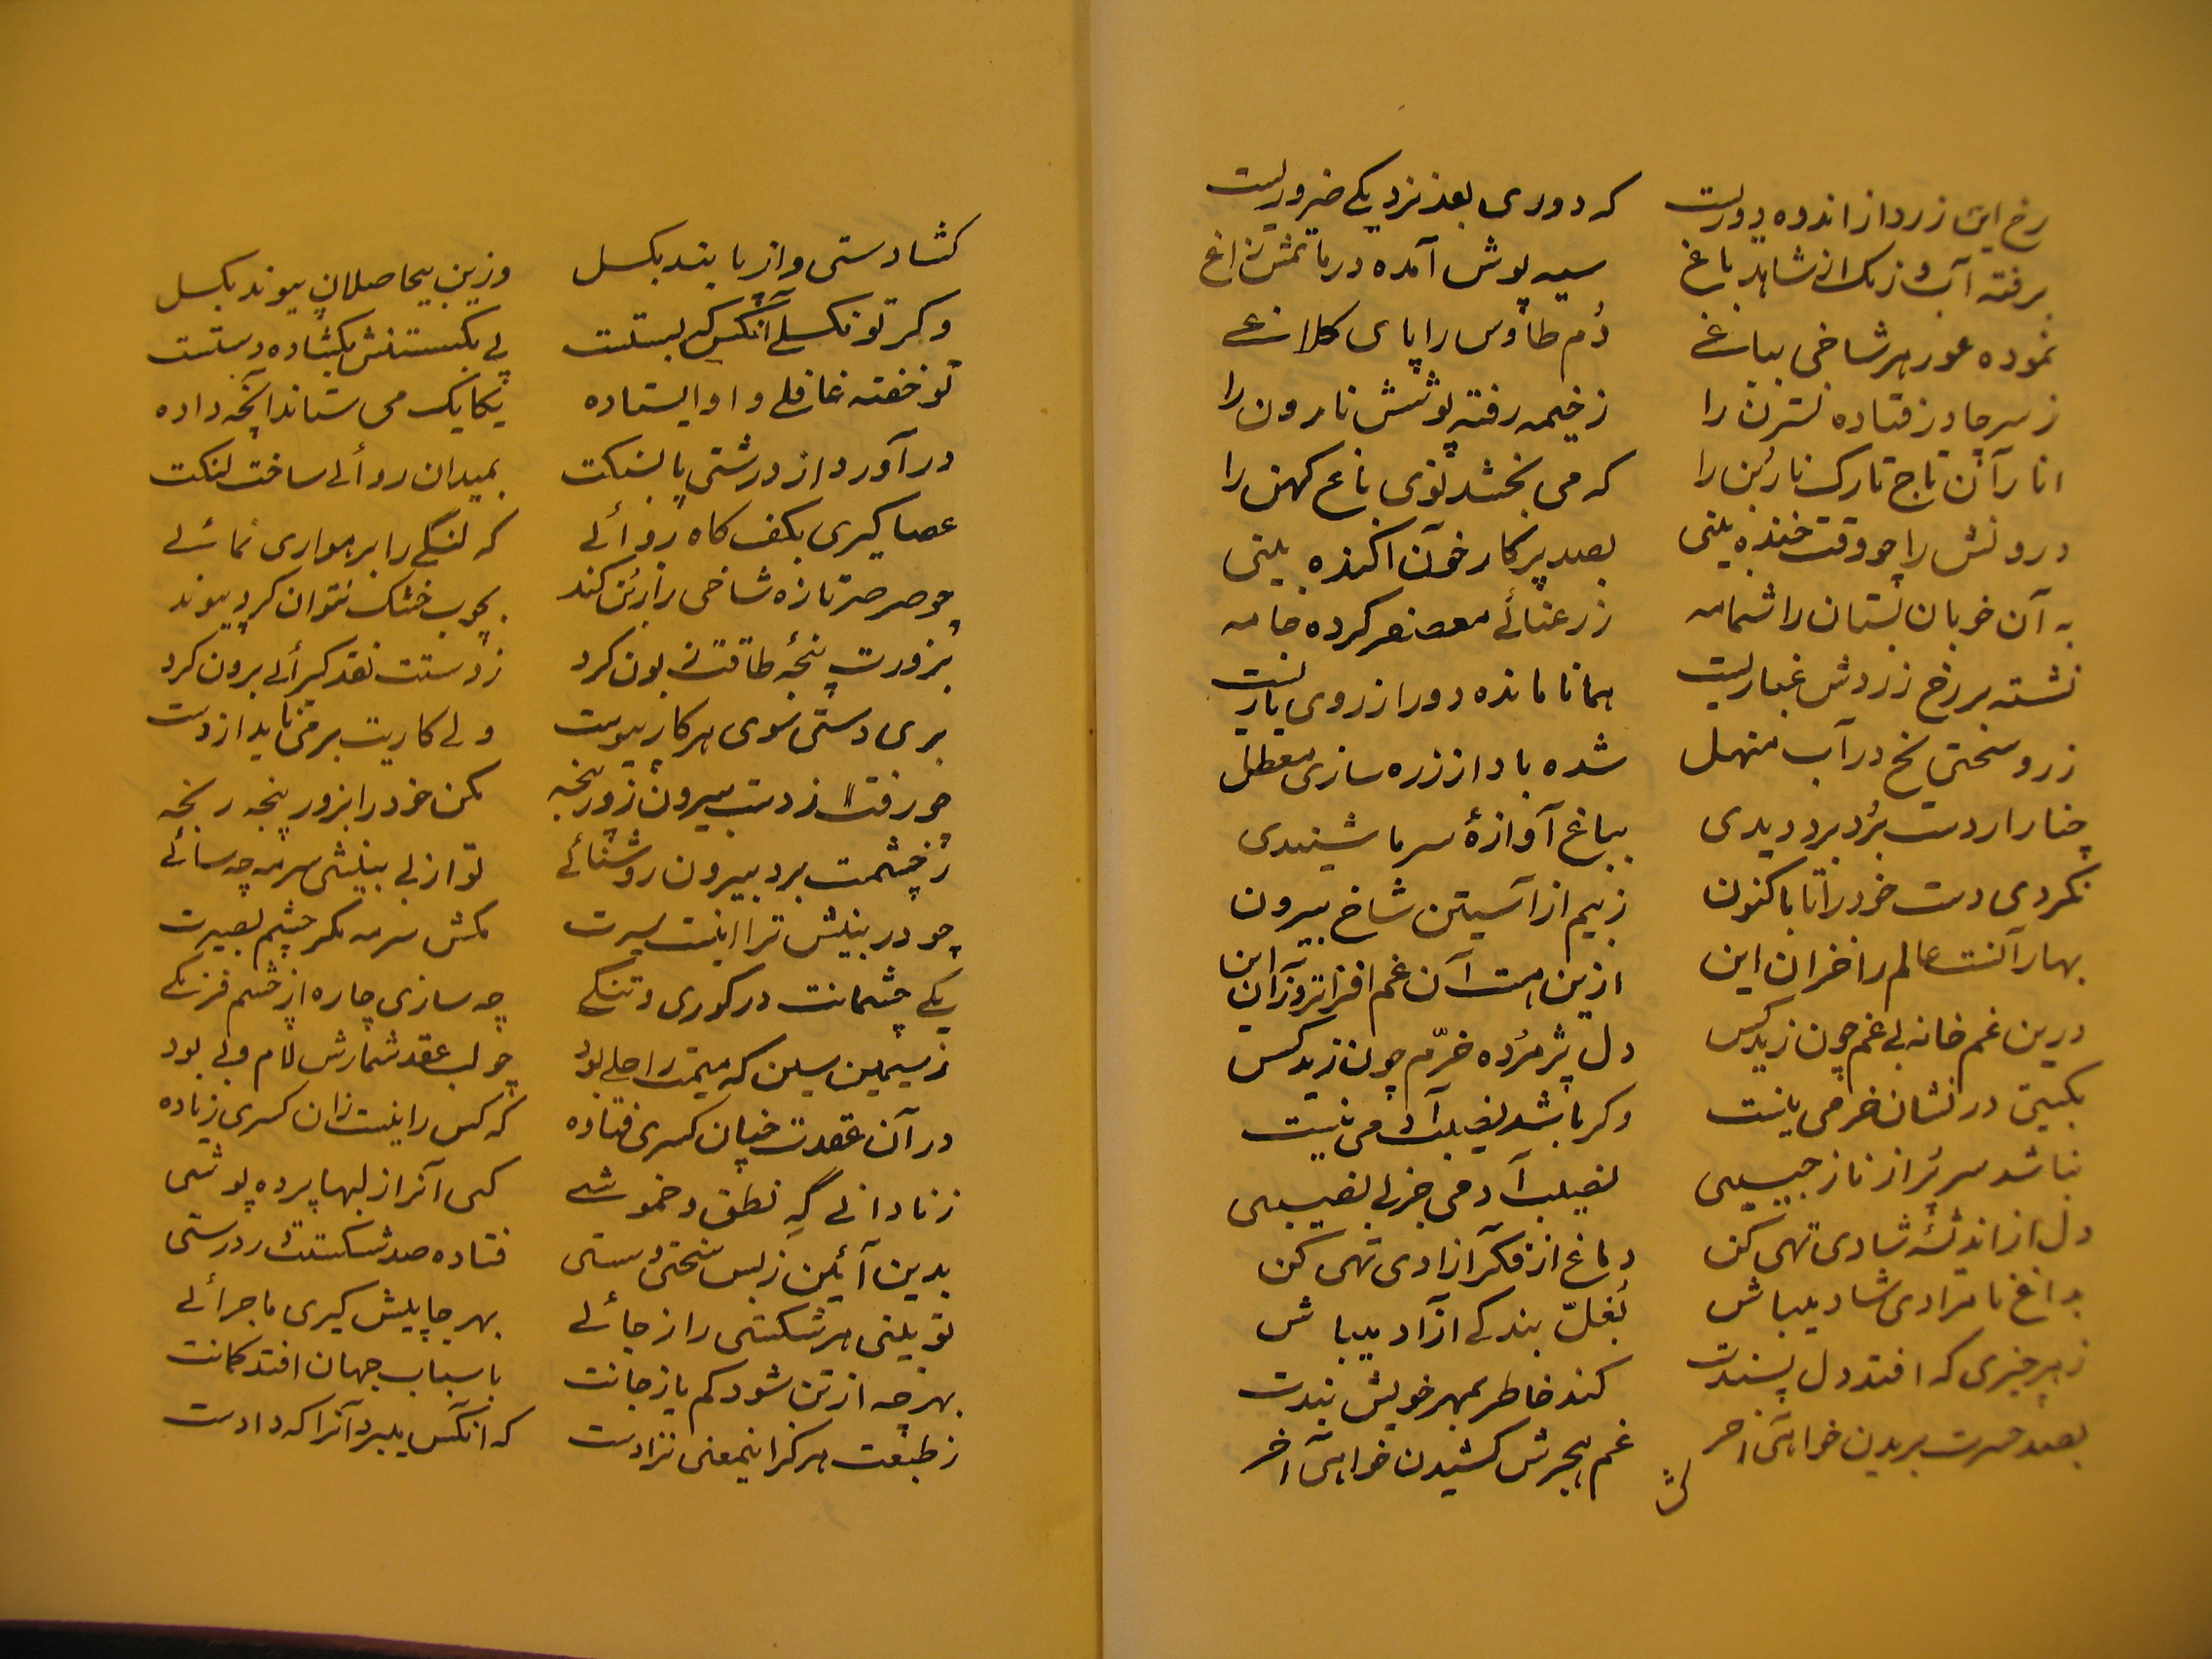 رخ این زرد از اندوه دوریست که دوری بعد نزدیکی ضروریست
برفته آب و رنگ از شاهد باغ سیه پوش آمده در ماتمش زاغ
نموده عور هر شاخی بباغی دم طاوس را پای کلاغی
ز سر چادر فتاده نسترن را ز خیمه رفته پوشش نارون را
انار آن تاج تارک نار بن را که می بخشد نوی باغ کهن را
درونش را چو وقت خنده بینی بصد پرکار خون آکنده بینی
به آن خوبان بستان را شمامه ز رعنائی معصفر کرده جامه
نشسته بر رخ زردش غباریست همانا مانده دور از روی یاریست
ز رو سختی یخ در آب منهل شده باد از زره سازی معطل
چنار ار دست برد برد دیدی بباغ آوازۀ سرما شنیدی
نکردی دست خود را تا باکنون ز بیم از آستین شاخ بیرون
بهار آنست عالم را خزان این ازین هست آن غم افزاتر و زان این
درین غم خانه بی غم چون زید کس دل پژمرده خرم چون زید کس
بگیتی در نشان خرمی نیست وگر باشد نصیب آدمی نیست
نباشد سر بر از ناز حبیبی نصیب آدمی جز بی نصیبی
دل از اندیشۀ شادی تهی کن دماغ از فکر آزادی تهی کن
بداغ نامرادی شاد میباش بغل بندگی آزاد میباش
ز هر چیزی که افتد دل پسندت کند خاطر بمهر خویش بندت
بصد حسرت بریدن خواهی آخر غم هجرش کشیدن خواهی آخر
کشا دستی و از پا بند بکسل وزین بیحاصلان پیوند بکسل
وگر تو نکسلی آنکس که بستت پی بکسستنش بکشاده دستت
تو خفته غافلی و او ایستاده یکایک می ستاند آنچه داده
در آورد از درشتی پا بسنکت بمیدان روائی ساخت لنکت
عصا کیری بکف کاه روائی که لنکی را برهواری نمائی
چو صرصر تازه شاخی را ز بن کند بچوب خشک نتوان کرد پیوند
بزورت پنجۀ طاقت زبون کرد ز دستت نقد کیرائی برون کرد
بری دستی سوی هر کار پیوست ولی کاریت بر می ناید از دست
چو رفتت ز دست بیرون زور پنجه مکن خود را بزور پنجه رنجه
ز چشمت برد بیرون روشنائی تو از بی بینشی سرمه چه سائی
چو در بینش ترا اینست سیرت مکش سرمه مکر چشم بصیرت
یکی چشمانت در کوری و تنکی چه سازی چاره از چشم فرنکی
ز سیمین سین که میمت را حلی بود چو لب عقد شمارش لام و بی بود
در آن عقدت چنان کسری فتاده که کس را نیست زان کسری زیاده
ز نادانی گه نطق و خموشی کنی آنرا ز لبها پرده پوشی
بدین آئین ز بس سختی و سستی فتاده صد شکستت در درستی
تو بینی هر شکستی را ز جائی بهر جا پیش کیری ماجرائی
بهر چه از تن شود کم یا ز جانت باسباب جهان افتد کمانت
ز طبعت هر کز اینمعنی نزادست که آنکس میبرد آنرا که دادست
کشا